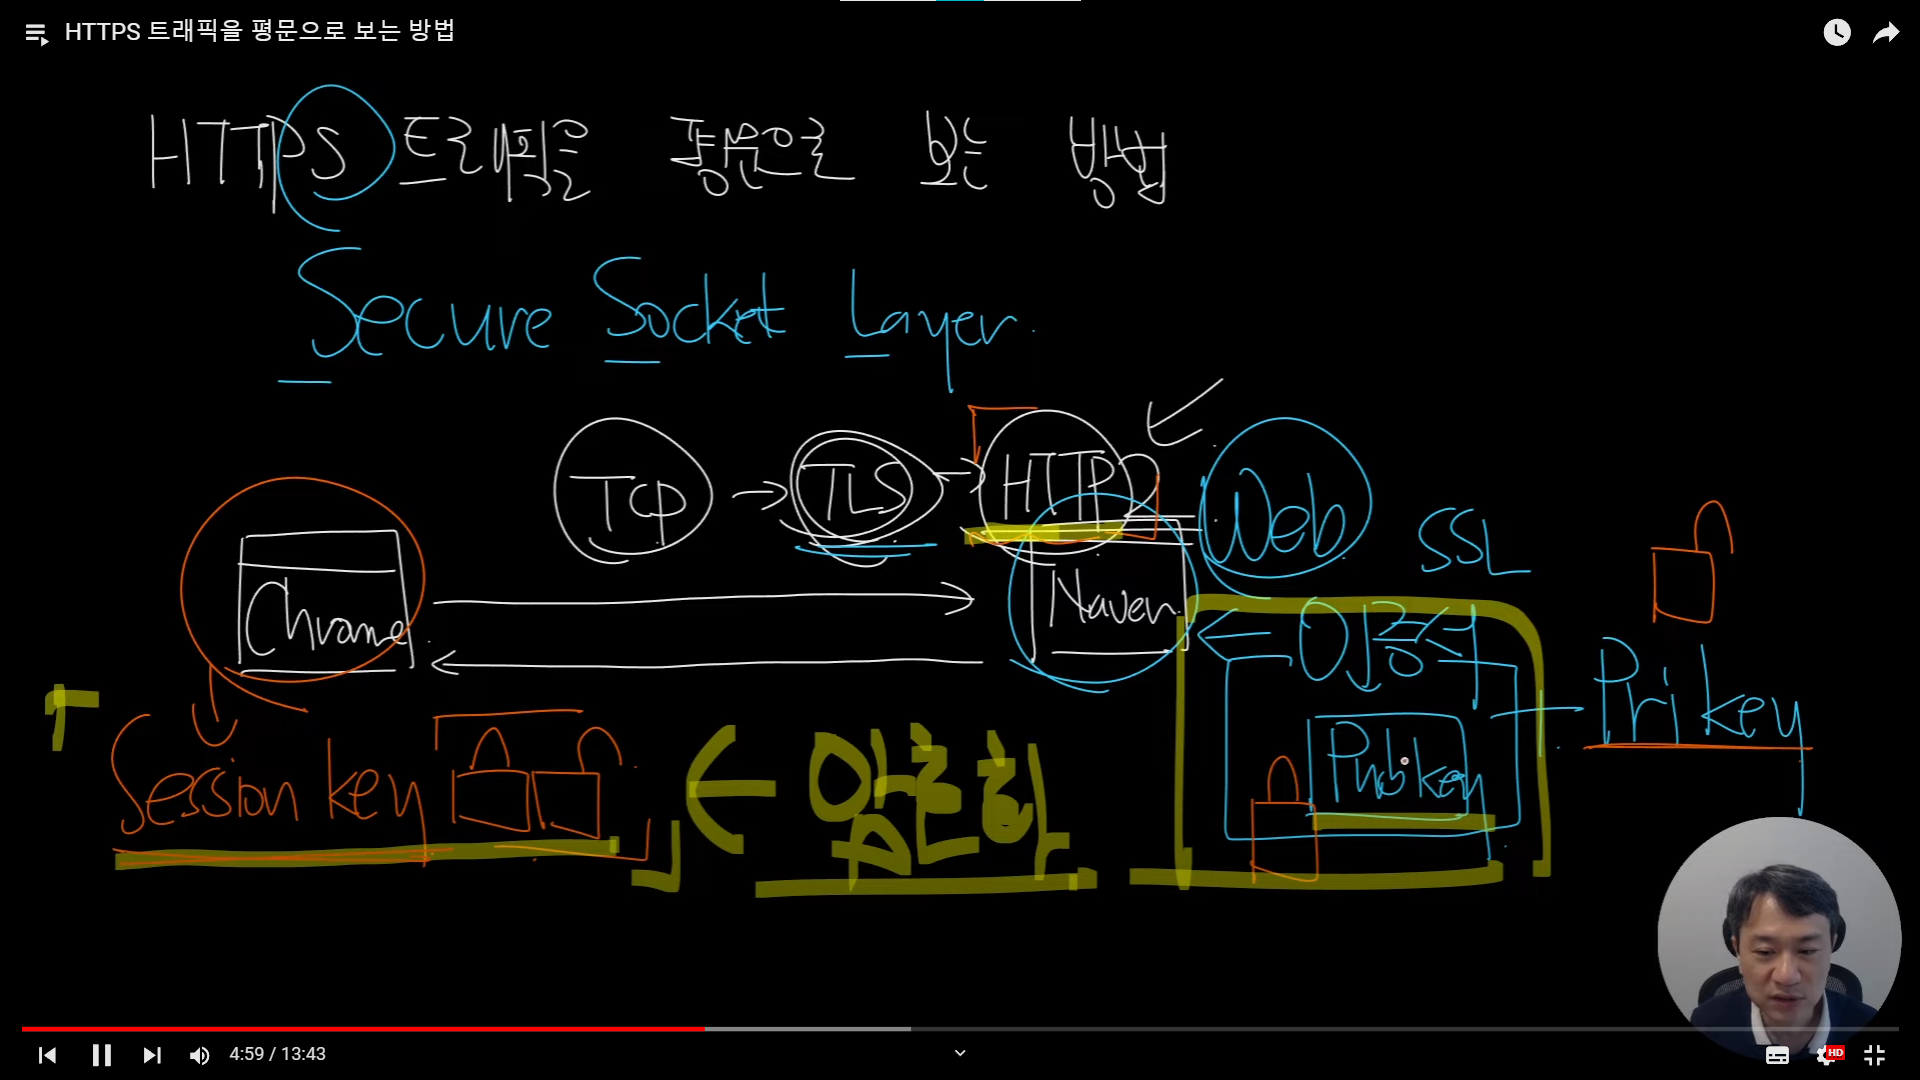 HTTPS 트래픽을 평문으로 보는 방법
HTTPS 트래픽을 평문으로 보는 방법
Secure Socket Layer.
TCP → TLS → HTTP
Web
SSL
Chrome
Naver
인증서
Pri key
Session key
암호화
Pub key
4:59 / 13:43
HD